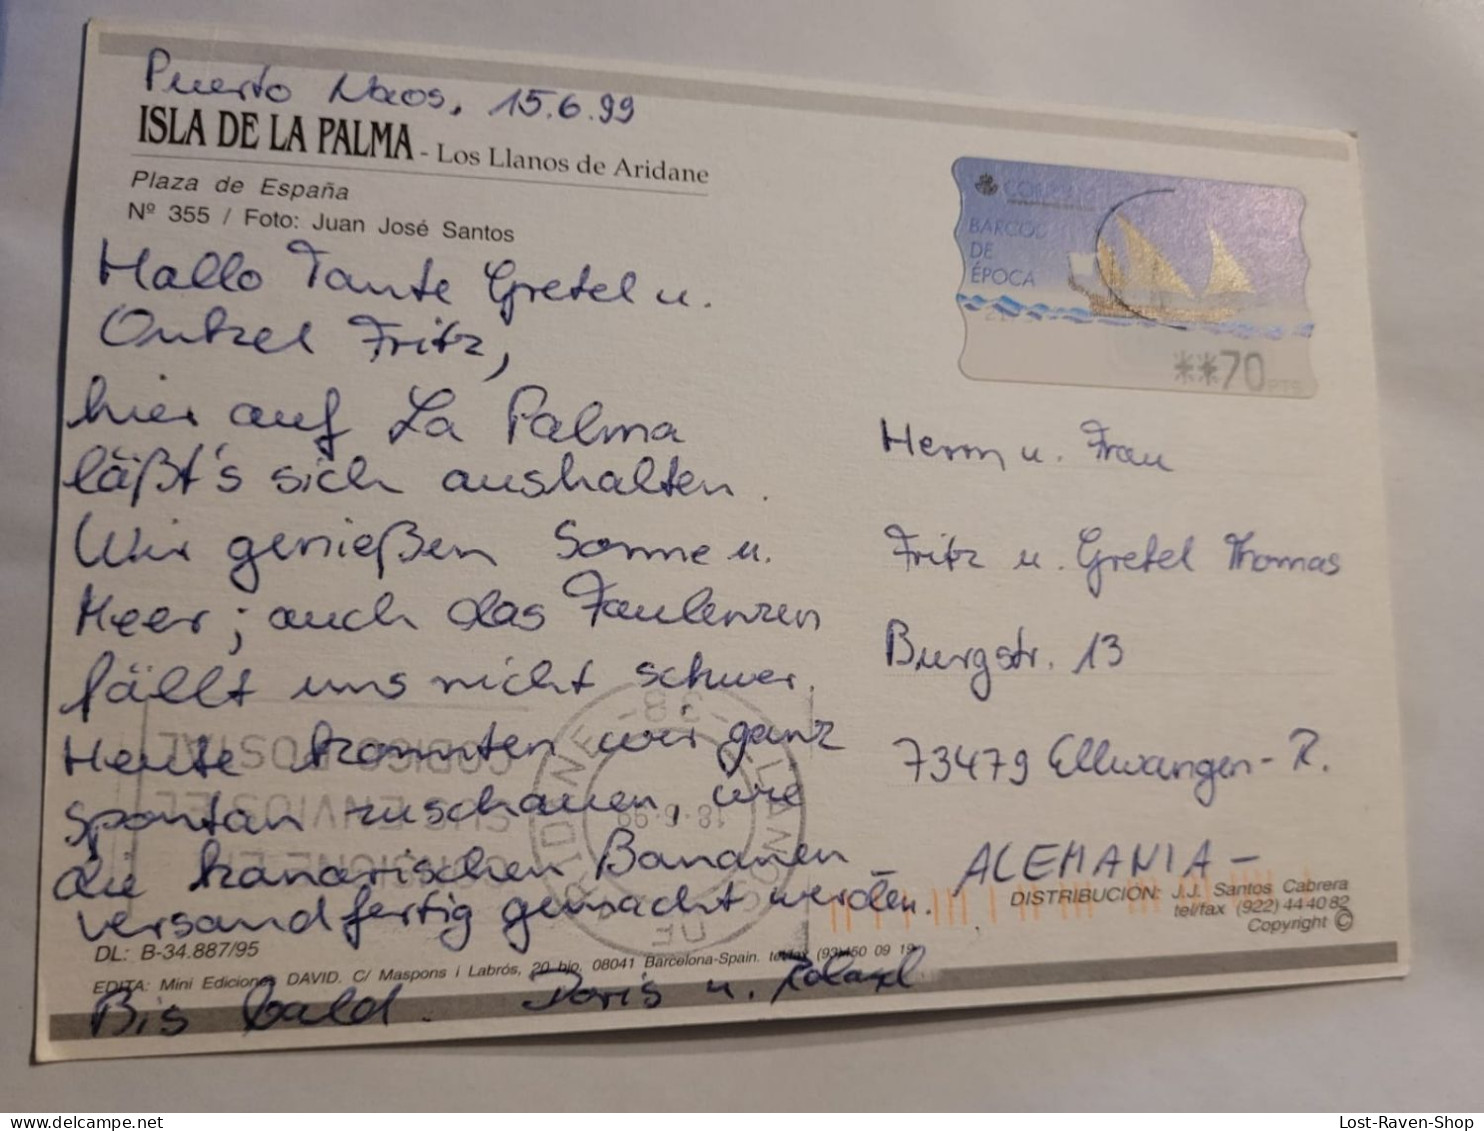 Puerto Naos, 15.6.99
ISLA DE LA PALMA - Los Llanos de Aridane
Plaza de España
Nº 355 / Foto: Juan José Santos
Hallo Tante Gretel u.
Onkel Fritz,
hier auf La Palma
läßt's sich aushalten.
Wir genießen Sonne u.
Meer; auch das Faulenzen
fällt uns nicht schwer.
Heute konnten wir ganz
spontan zuschauen, wie
die kanarischen Bananen
versandfertig gemacht werden.
Bis bald. Doris u. Roland
DL: B-34.887/95
EDITA: Mini Ediciones DAVID. C/ Maspons i Labrós, 20 bjo. 08041 Barcelona-Spain. tel/fax (93) 450 09 19
CORREOS
BARCOS
DE
ÉPOCA
**70 PTS
Herrn u. Frau
Fritz u. Gretel Thomas
Burgstr. 13
73479 Ellwangen-R.
- ALEMANIA -
DISTRIBUCION: J.J. Santos Cabrera
tel/fax (922) 44 40 82
Copyright ©
CODIGO POSTAL
SUS ENVIOS EL
CONSIGNE EN
LLANOS DE ARIDANE
-38-
18.6.99
Lost-Raven-Shop